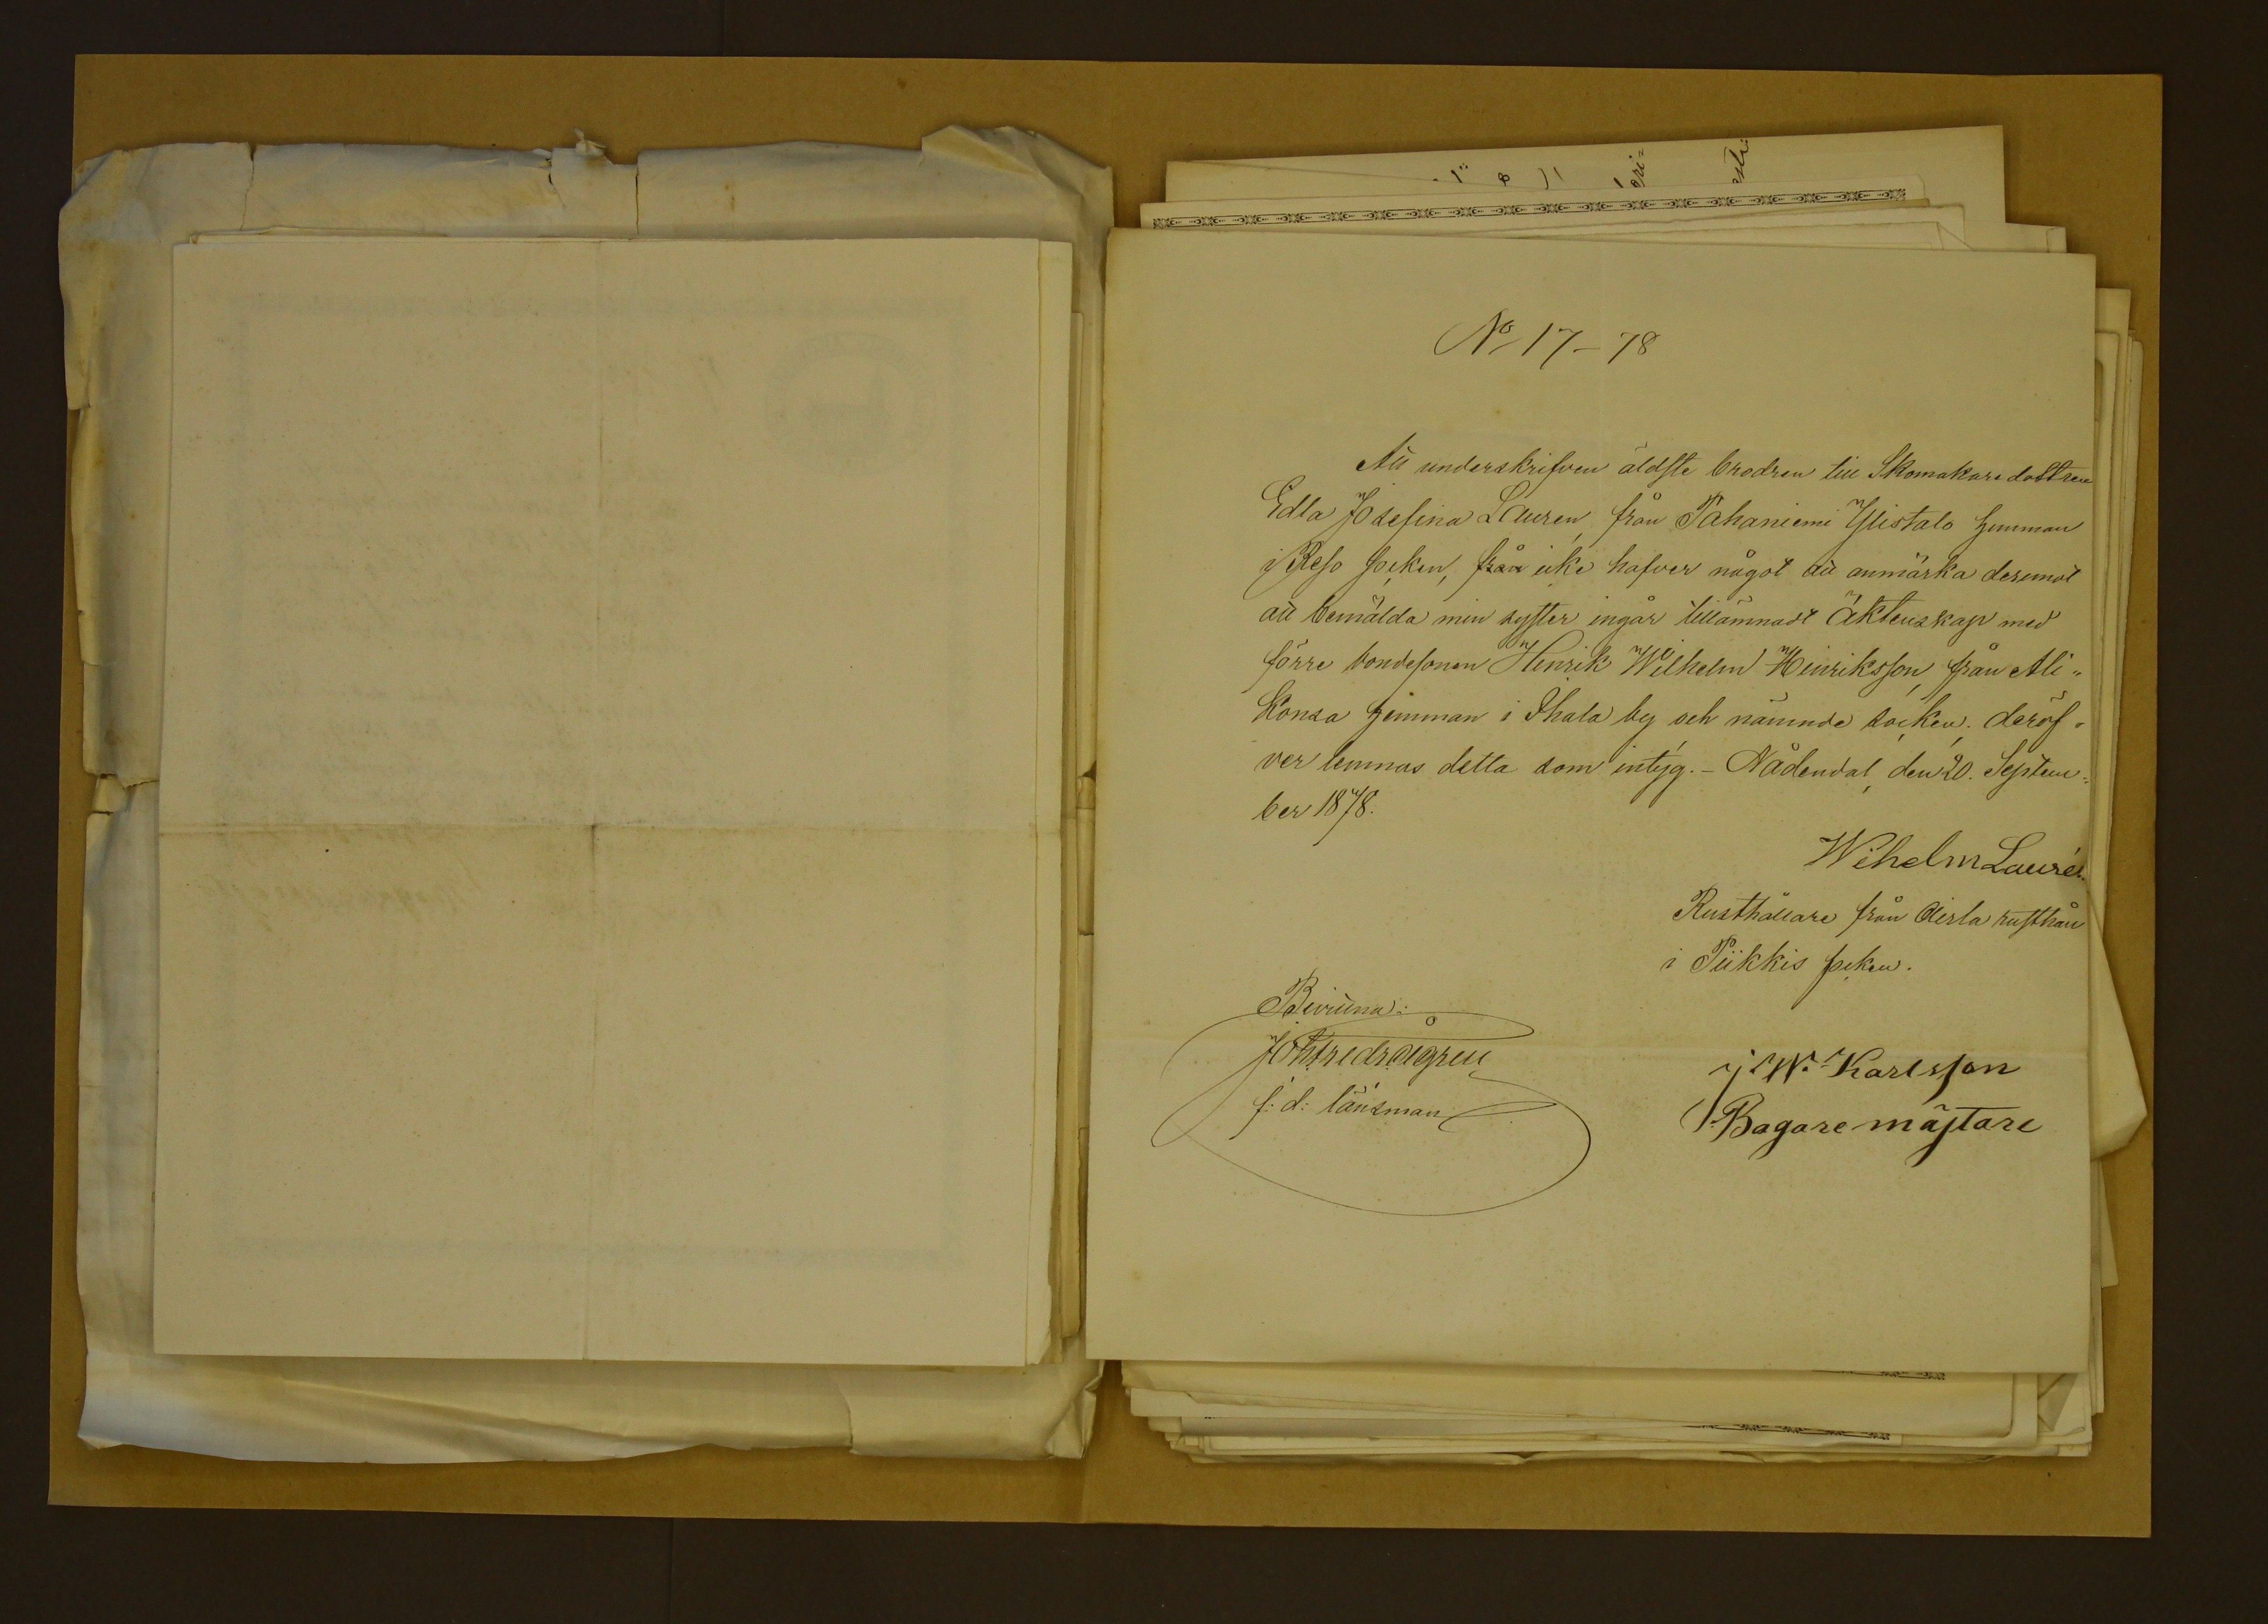 No 17-78
Att underskrifven äldste brodren till Skomakare dottren
Edla Josefina Lauren, från Pahaniemi Ylistalo hemman
i Reso socken, från icke hafver något att anmärka deremot
att bemälda min syster ingår tillämnadt äktenskap med
förre bondesonen Henrik Wilhelm Henriksson, från Ali-
Konsa hemman i Ihala by och nämnde socken; deröf-
ver lemnas detta som intyg. - Nådendal, den 20. Septem-
ber 1878.
Wihelm Laurén.
Rusthållare från Aerla rusthåll
i Piikkis socken.
Bevittna:
f: d: länsman
J W. Karlsson
Bagare mästare